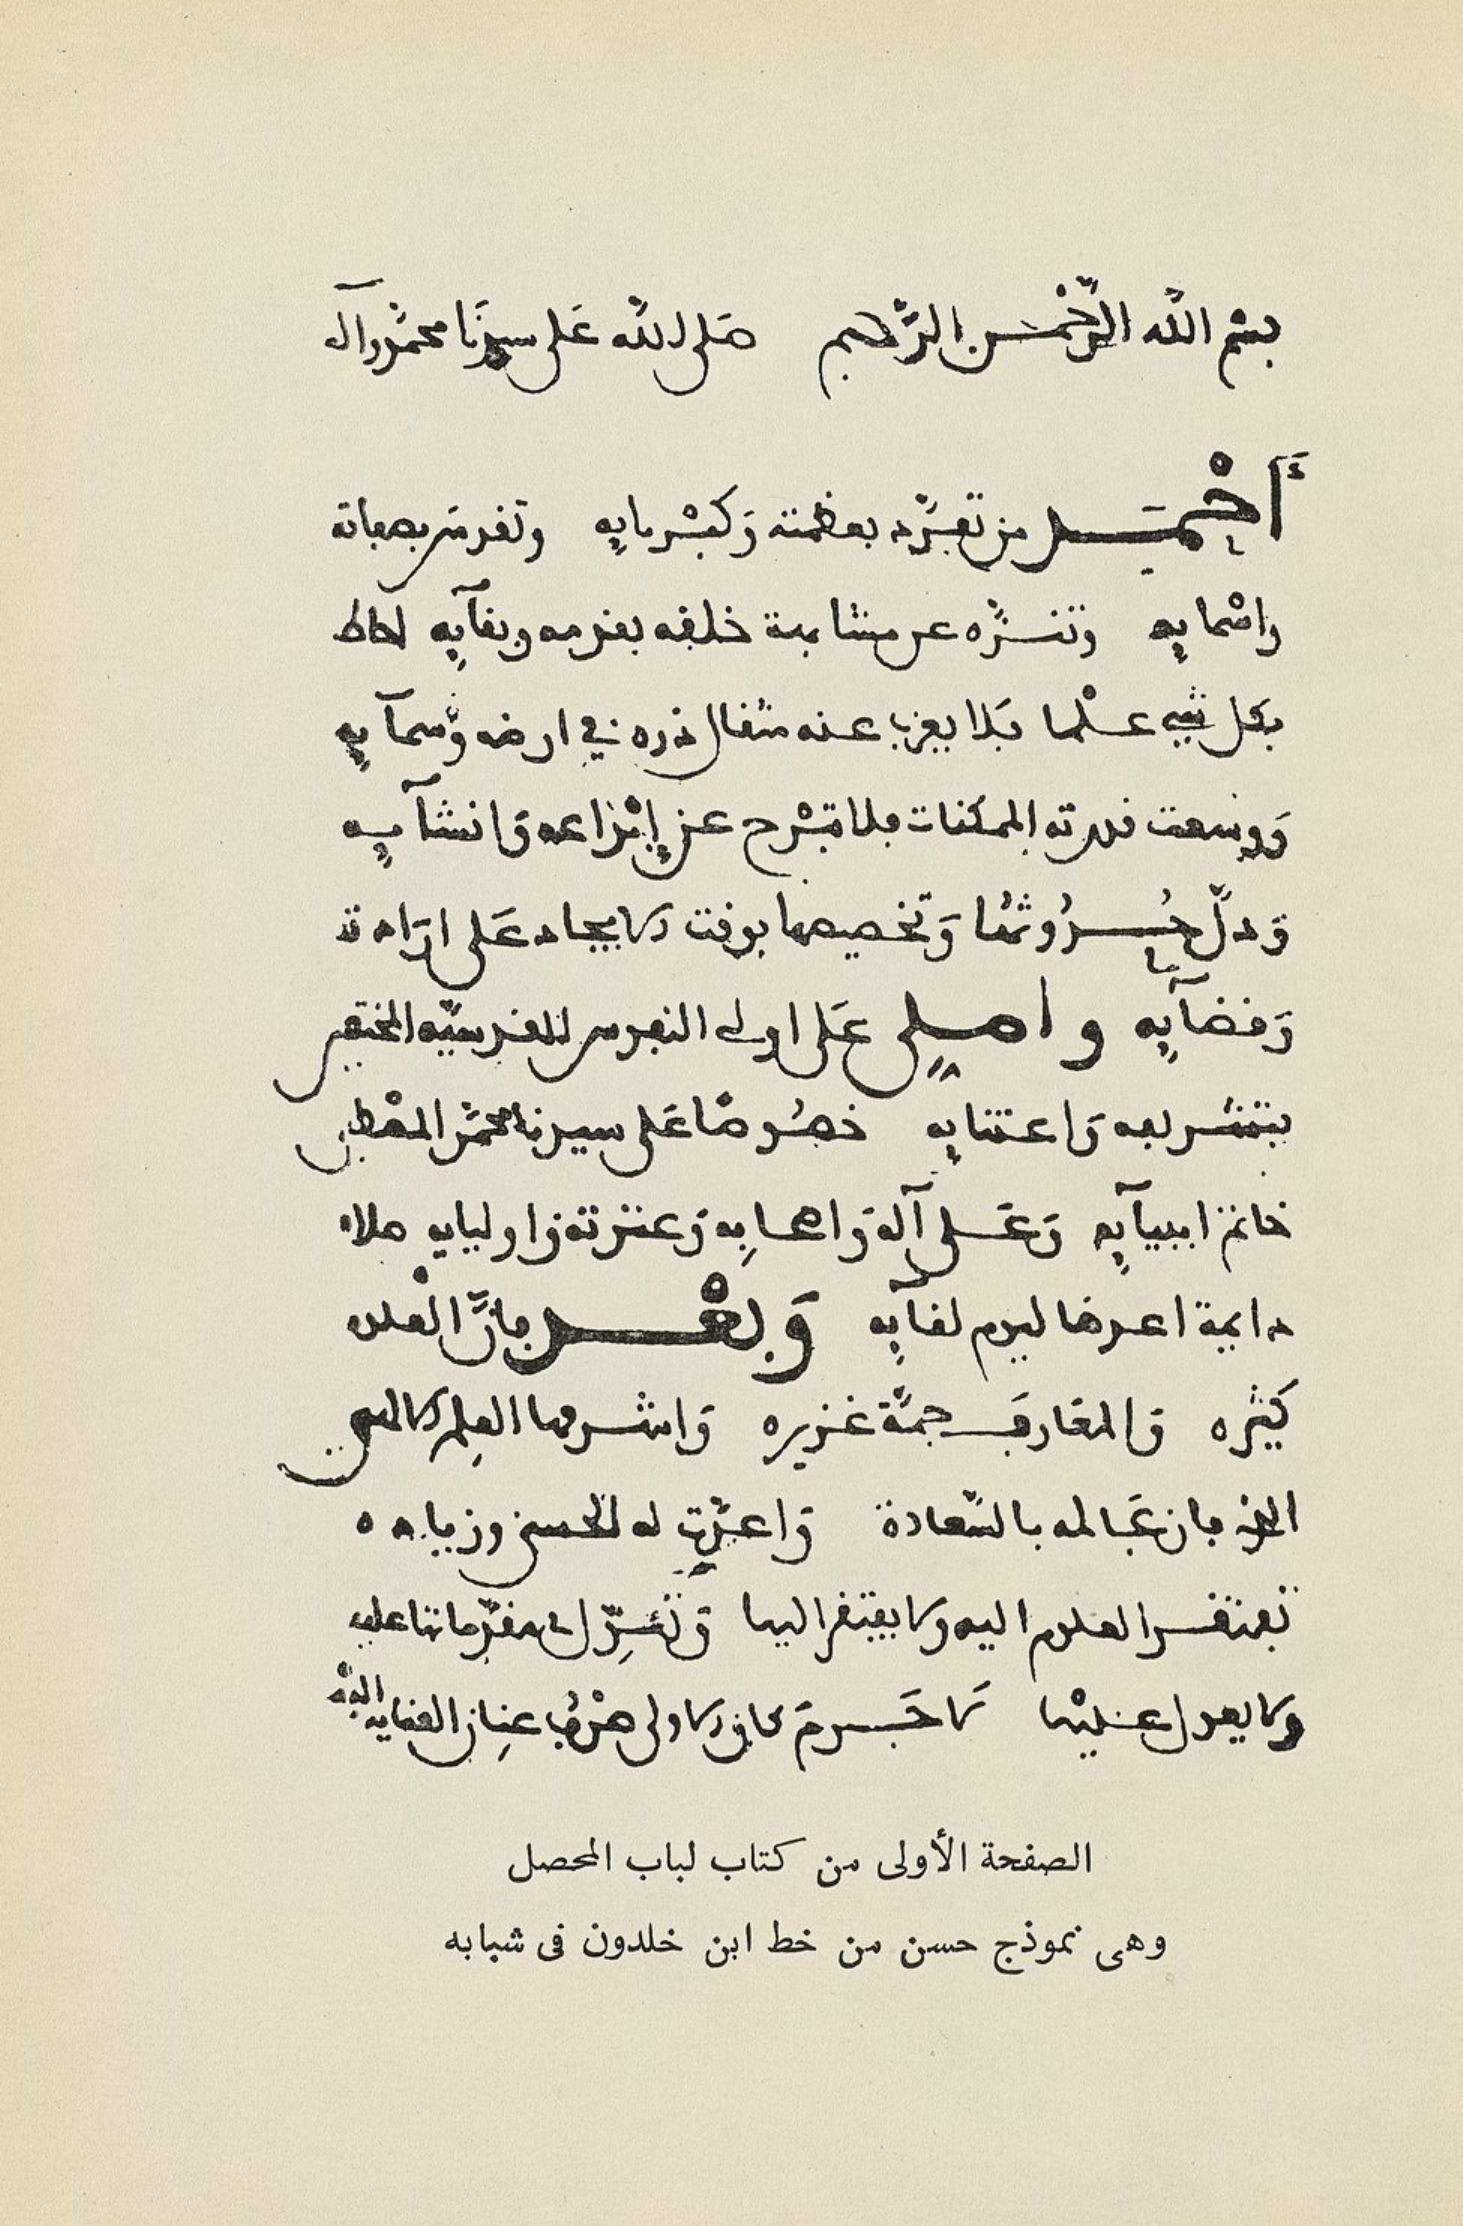 بسم الله الرَّحْمٰن الرَّحيم صَلى الله عَلى سيدنَا محمد وآله
أَحْمَد من تفرَّد بعظمته وَكبْريايِه وتقدس بصفاته
واسْمايِه وتنزَّه عن مشابهة خلقه بقدمه وبقآيِه احاط
بكل شيء علْما فَلا يعزب عنه مثقال ذره في ارضه وَسمآيِه
وَوسعت قدرته الممكنات فلا تبْرح عن إِبْداعه وَانشآيِه
وَدلّ حُدُوثُها وَتخصيصها بوقت الايجاد عَلى ارَادته
وَقضآيِه واصلي عَلى اولى النفوس القدسيّه المختصين
بتشريفه وَاعتنايِه خصُوصًا عَلى سيدنا محمَّد المصْطفى
خاتم انبيآيِه وَعَلى آله وَاصحابِه وَعترته واوليايِه صلاه
دايمة اعدها ليوم لقآيِه وَبعْد فإنَّ الْعلوم
كثيره وَالمعَارفَ جمَّة غزيره وَاشرفها العِلم الالهي
الذي فاز عَالمه بالسَّعادة وَاعدّت له الحسنى وزياده
تفتقر العلوم اليه ولا يفتقر اليها وَتُعَوِّل في مقدّماتها عليه
ولا يعول عليْها لا جَرمَ كان الاولى صرْف عنِان العنايه اليْه
الصفحة الأولى من كتاب لباب المحصل
وهى نموذج حسن من خط ابن خلدون فى شبابه